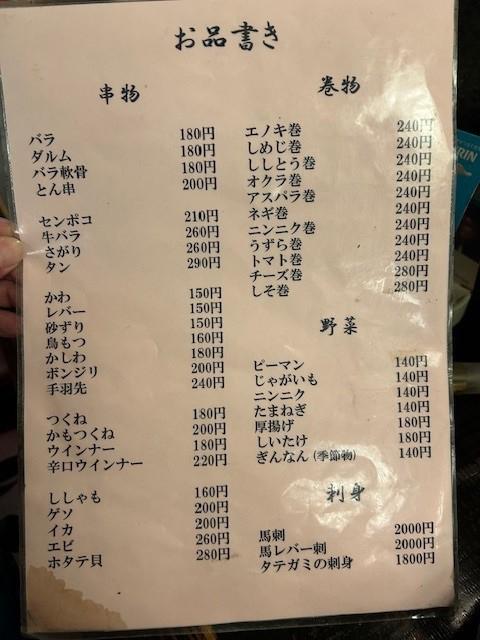 お品書き
串物
バラ 180円
ダルム 180円
バラ軟骨 180円
とん串 200円
センポコ 210円
牛バラ 260円
さがり 260円
タン 290円
かわ 150円
レバー 150円
砂ずり 150円
鳥もつ 160円
かしわ 180円
ボンジリ 200円
手羽先 240円
つくね 180円
かもつくね 200円
ウインナー 180円
辛口ウインナー 220円
ししゃも 160円
ゲソ 200円
イカ 200円
エビ 260円
ホタテ貝 280円
巻物
エノキ巻 240円
しめじ巻 240円
ししとう巻 240円
オクラ巻 240円
アスパラ巻 240円
ネギ巻 240円
ニンニク巻 240円
うずら巻 240円
トマト巻 240円
チーズ巻 280円
しそ巻 280円
野菜
ピーマン 140円
じゃがいも 140円
ニンニク 140円
たまねぎ 140円
厚揚げ 180円
しいたけ 180円
ぎんなん(季節物) 140円
刺身
馬刺 2000円
馬レバー刺 2000円
タテガミの刺身 1800円